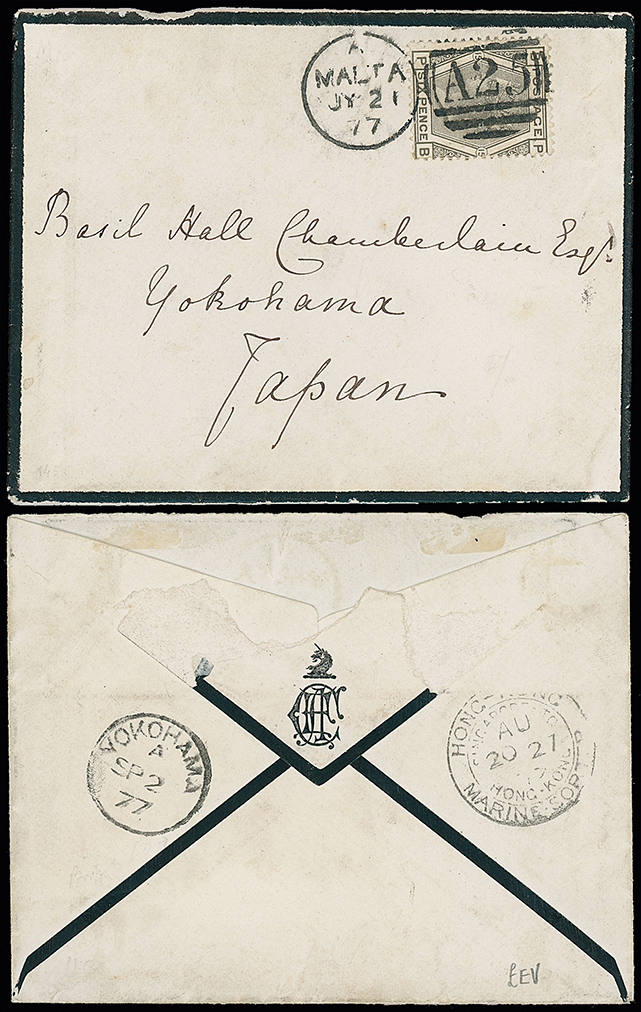 A
MALTA
JY 21
77
A25
SIX PENCE
P
B
P
Basil Hall Chamberlain Esqr.
Yokohama
Japan
YOKOHAMA
A
SP 2
77
HONG-KONG
SINGAPORE TO
AU
20 21
77
HONG-KONG
MARINE SORT
£EV